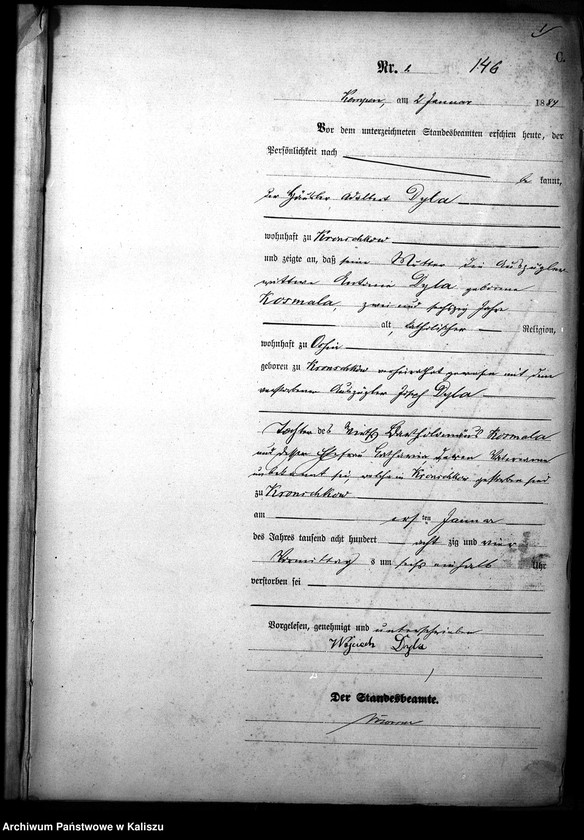 C.
Nr. 1. 146
Kempen, am 2 Januar 1884
Vor dem unterzeichneten Standesbeamten erschien heute, der
Persönlichkeit nach
be kannt,
der Häusler Adalbert Dyla
wohnhaft zu Kronschkow
und zeigte an, daß seine Mutter die Auszügler
wittwe Antonie Dyla geborene
Kosmala, zwei und sechzig Jahre
alt, katholischer Religion,
wohnhaft zu
geboren zu Kronschkow verheirathet gewesen mit dem
verstorbenen Auszügler Josef Dyla
Tochter des Wirths Bartholomäus Kosmala
und dessen Ehefrau Catharina, deren
unbekannt sei, welche in Kronschkow gestorben sind
zu Kronschkow
am ersten Januar
des Jahres tausend acht hundert acht zig und vier
Vormittags um sechs einhalb Uhr
verstorben sei
Vorgelesen, genehmigt und unterschrieben
Wojciech Dyla
Der Standesbeamte.
Archiwum Państwowe w Kaliszu